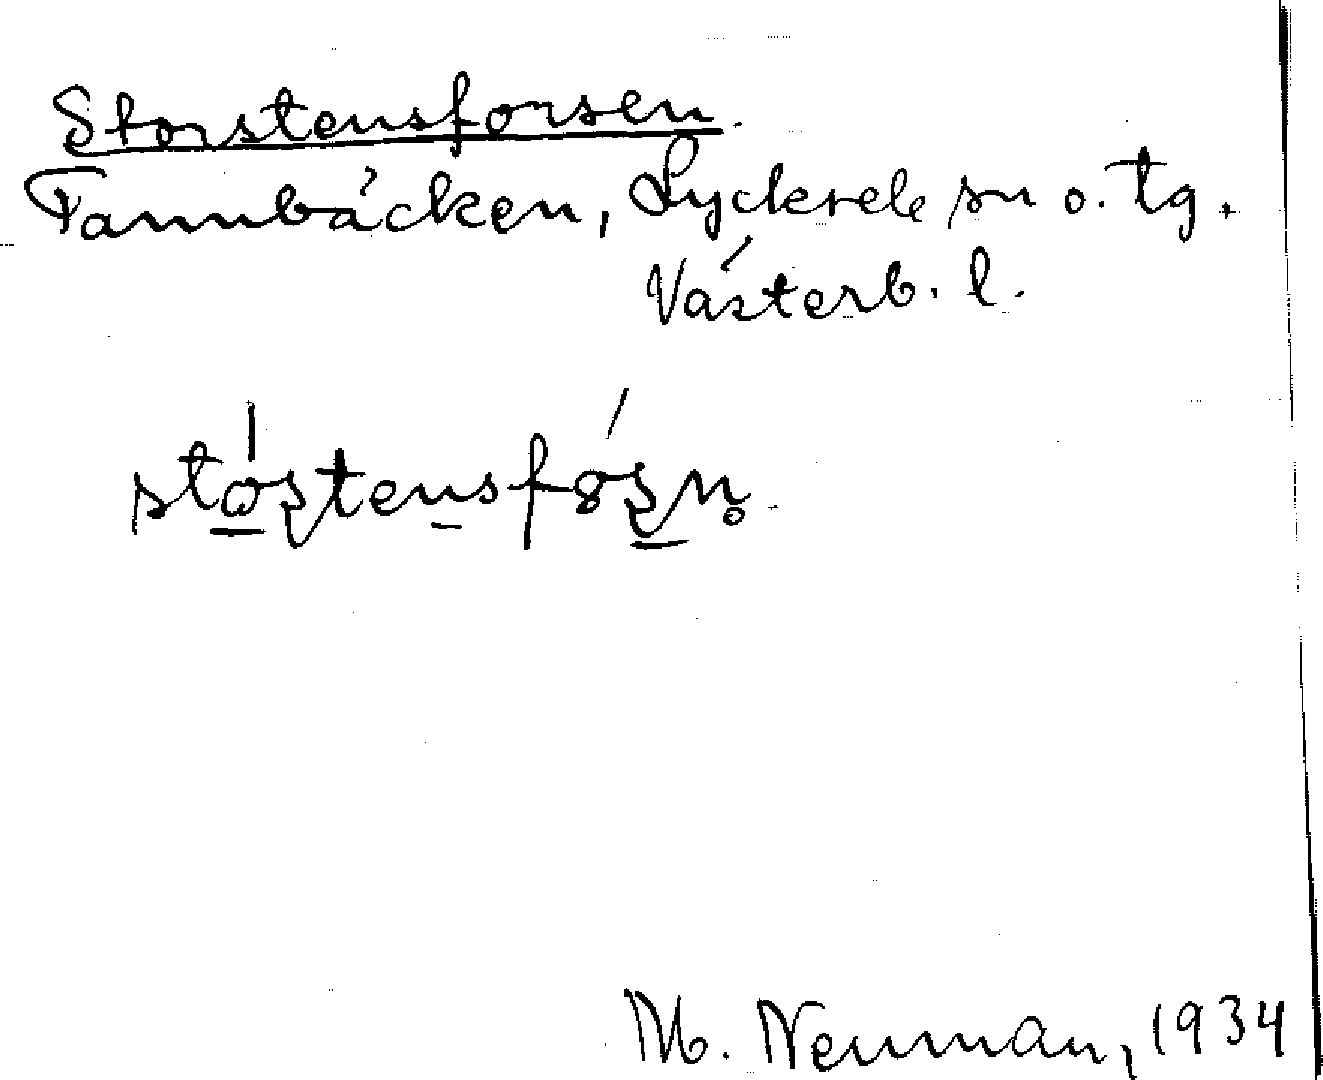 Storstensforsen.
Tannbäcken, Lycksele sn o. tg.
Västerb. l.
M. Neuman, 1934